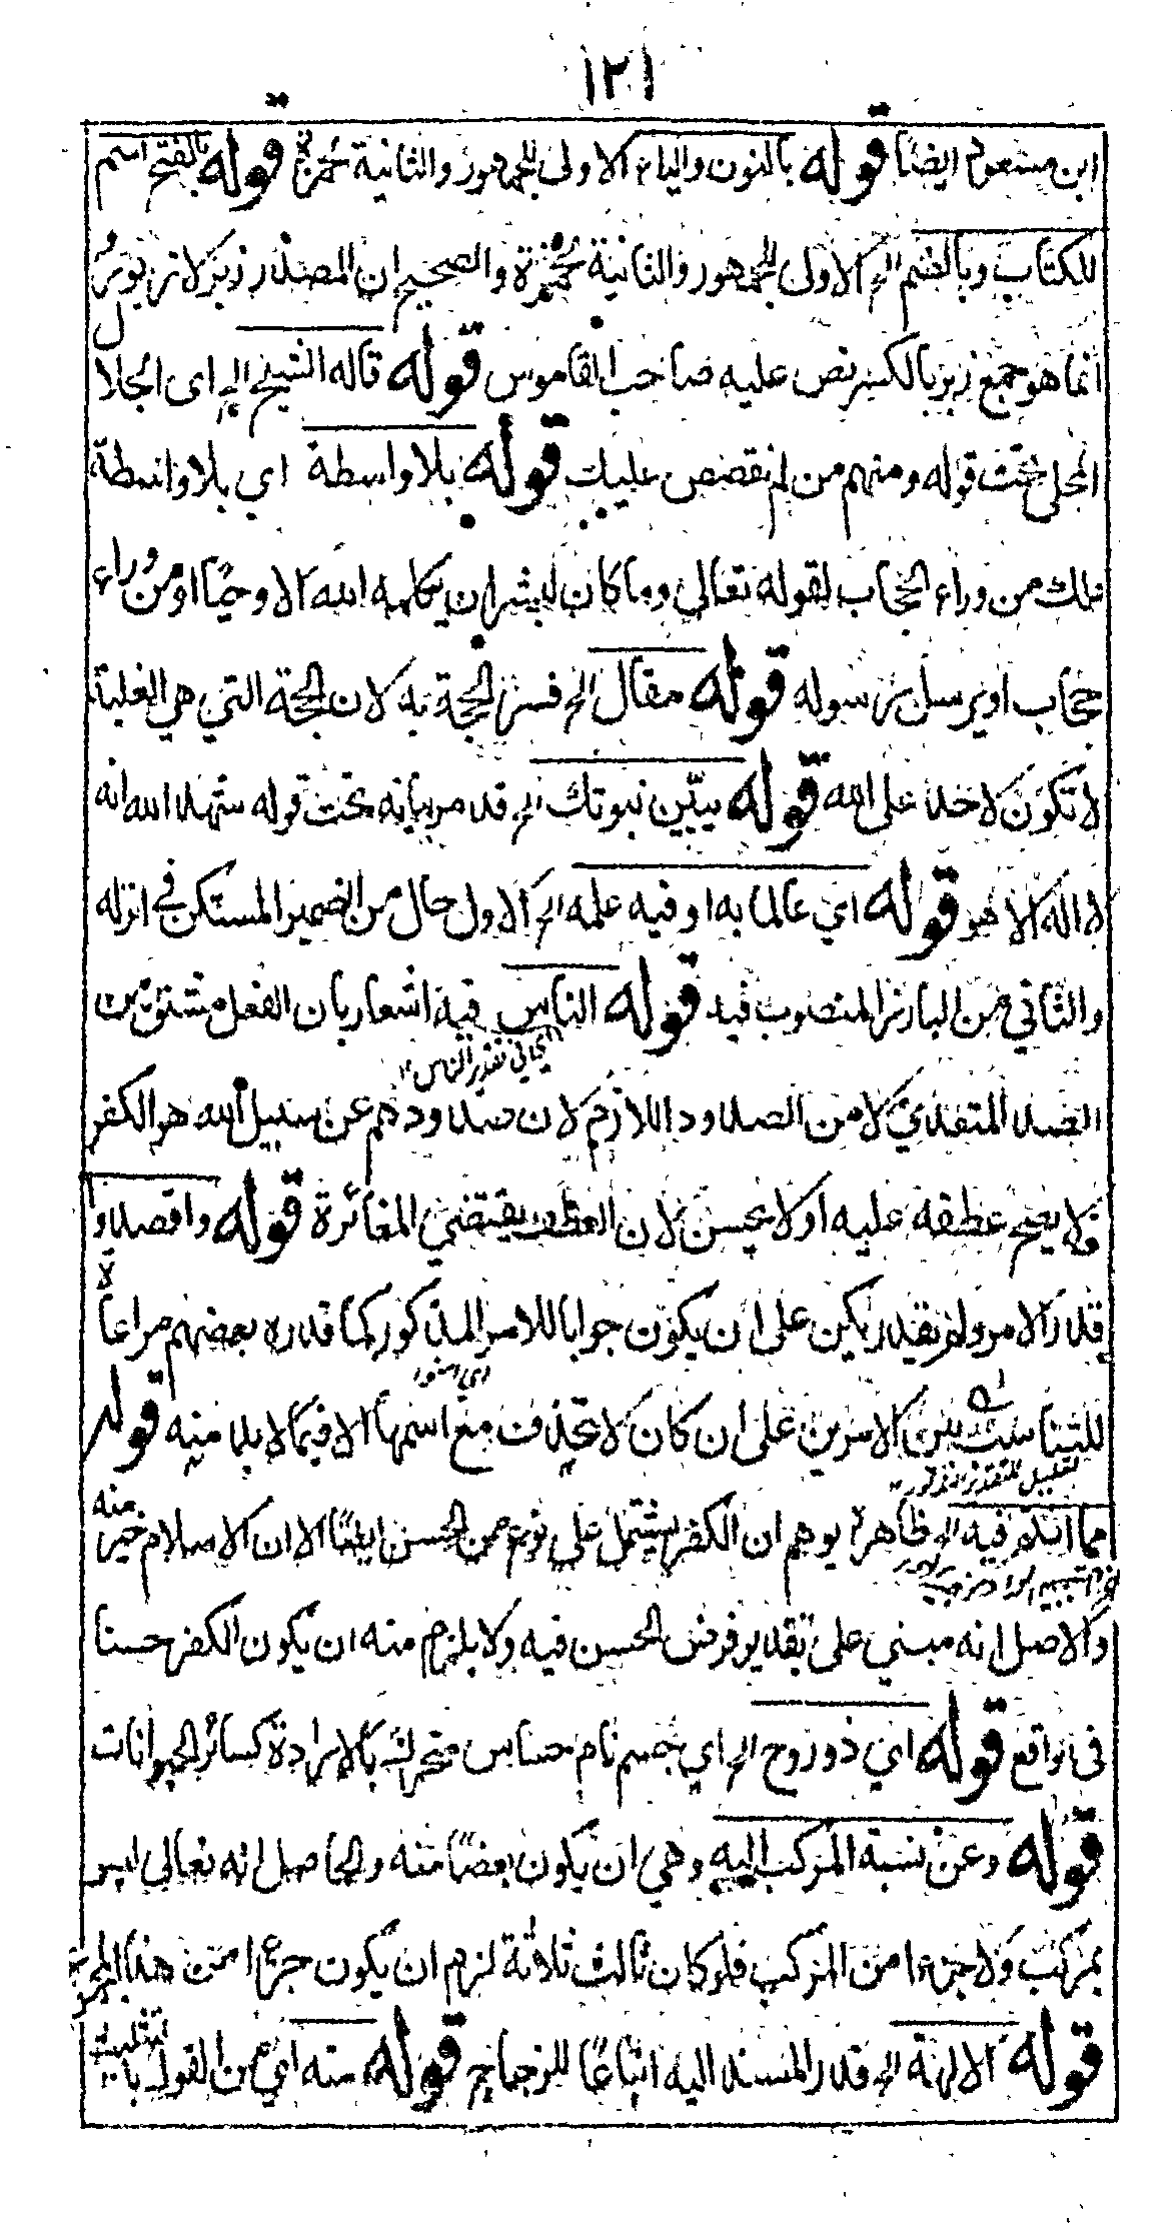 ١٢١
ابن مسعود ايضًا قوله بالنون والياء الاولى للجمهور والثانية لحمزة قوله بالفتح اسم
للكتاب وبالضم الخ الاولى للجمهور والثانية لحمزة والصحيح ان المصدر زبر لا زبور
انما هو جمع زبر بالكسر نص عليه صاحب القاموس قوله قاله الشيخ الخ اى الجلال
المحلى تحت قوله ومنهم من لم نقصص عليك قوله بلا واسطة اي بلا واسطة
ملك من وراء الحجاب لقوله تعالى وما كان لبشر ان يكلمه الله الا وحيًا او من وراء
حجاب او يرسل رسوله قوله مقال الخ فسر الحجة به لان الحجة التي هي الغلبة
لا تكون لاحد على الله قوله يبيّن نبوتك الخ قد مر بيانه تحت قوله شهد الله انه
لا اله الا هو قوله اي عالما به او فيه علمه الخ الاول حال من الضمير المستكن في انزله
والثاني من البارز المنصوب فيه قوله الناس فيه اشعار بان الفعل مشتق من
اي في تقدير الناس ١٢
الصد المتعدي لا من الصدود اللازم لان صدودهم عن سبيل الله هو الكفر
فلا يصح عطفه عليه او لا يحسن لان العطف يقتضي المغائرة قوله واقصدوا
قدر الامر ولم يقدر يكن على ان يكون جوابا للامر المذكور كما قدره بعضهم مراعاة
اي امنوا
للتناسب بين الامرين على ان كان لا تحذف مع اسمها الا فيما لا بد منه قوله
مما انتم فيه الخ ظاهره يوهم ان الكفر يشتمل على نوع من الحسن ايضًا الا ان الاسلام خير منه
والاصل انه مبني على تقدير فرض الحسن فيه ولا يلزم منه ان يكون الكفر حسنا
فى الواقع قوله اي ذو روح الخ اي جسم نام حساس متحرك بالارادة كسائر الحيوانات
قوله وعن نسبة المركب اليه وهي ان يكون بعضًا منه والحاصل انه تعالى ليس
بمركب ولا جزءا من المركب فلو كان ثالث ثلاثة لزم ان يكون جزءا من هذا المجموع
قوله الالهة الخ قدر المسند اليه اتباعًا للزجاج قوله منه اي من القول بالتثليث